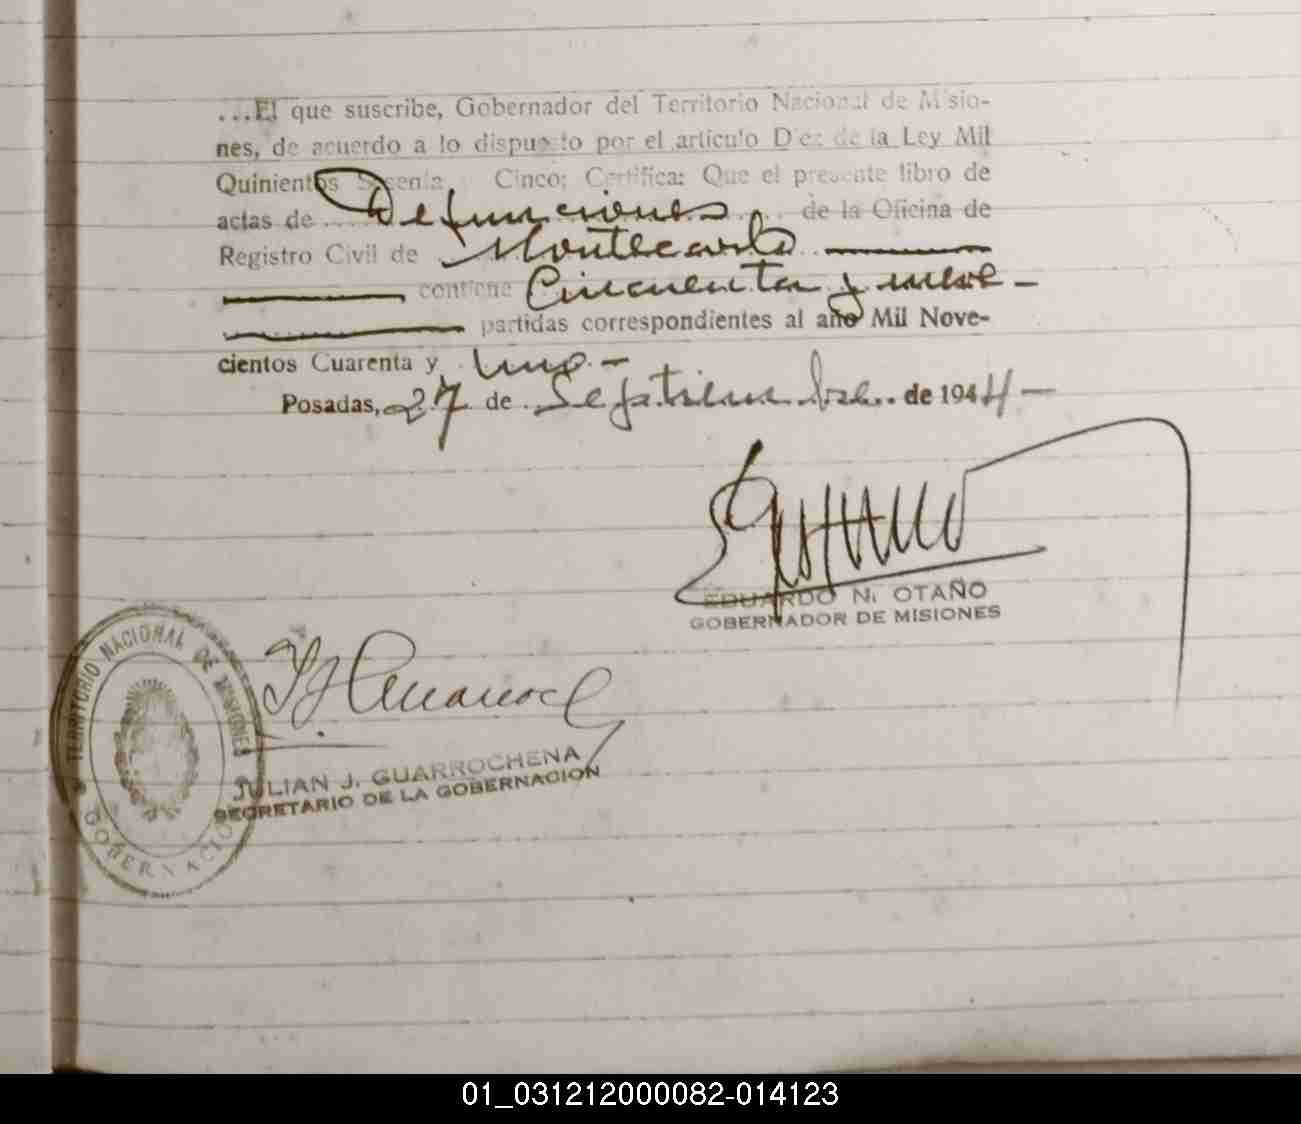 ...El que suscribe, Gobernador del Territorio Nacional de Misio-
nes, de acuerdo a lo dispuesto por el articulo Diez de la Ley Mil
Quinientos Secenta Cinco; Certifica: Que el presente libro de
actas de Defunciones de la Oficina de
Registro Civil de Montecarlo
contiene Cincuenta y nueve -
partidas correspondientes al año Mil Nove-
cientos Cuarenta y uno. -
Posadas, 27 de Septiembre de 1944 -
EDUARDO N. OTAÑO
GOBERNADOR DE MISIONES
TERRITORIO NACIONAL DE MISIONES
GOBERNACION
JULIAN J. GUARROCHENA
SECRETARIO DE LA GOBERNACION
01_031212000082-014123